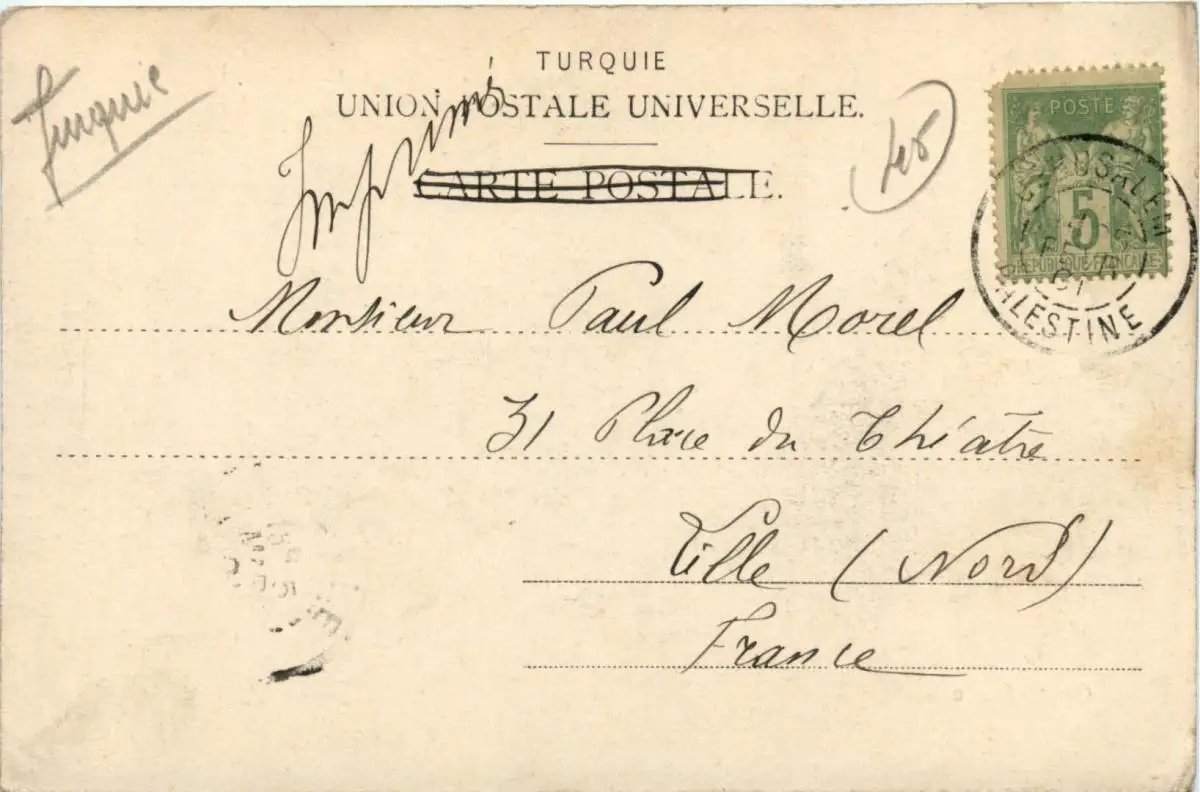 Turquie
TURQUIE
UNION POSTALE UNIVERSELLE.
Imprimé
CARTE POSTALE.
POSTE
5
RÉPUBLIQUE FRANÇAISE
JERUSALEM
FEVR
01
PALESTINE
Monsieur Paul Morel
31 Place du Théâtre
Lille (Nord)
France